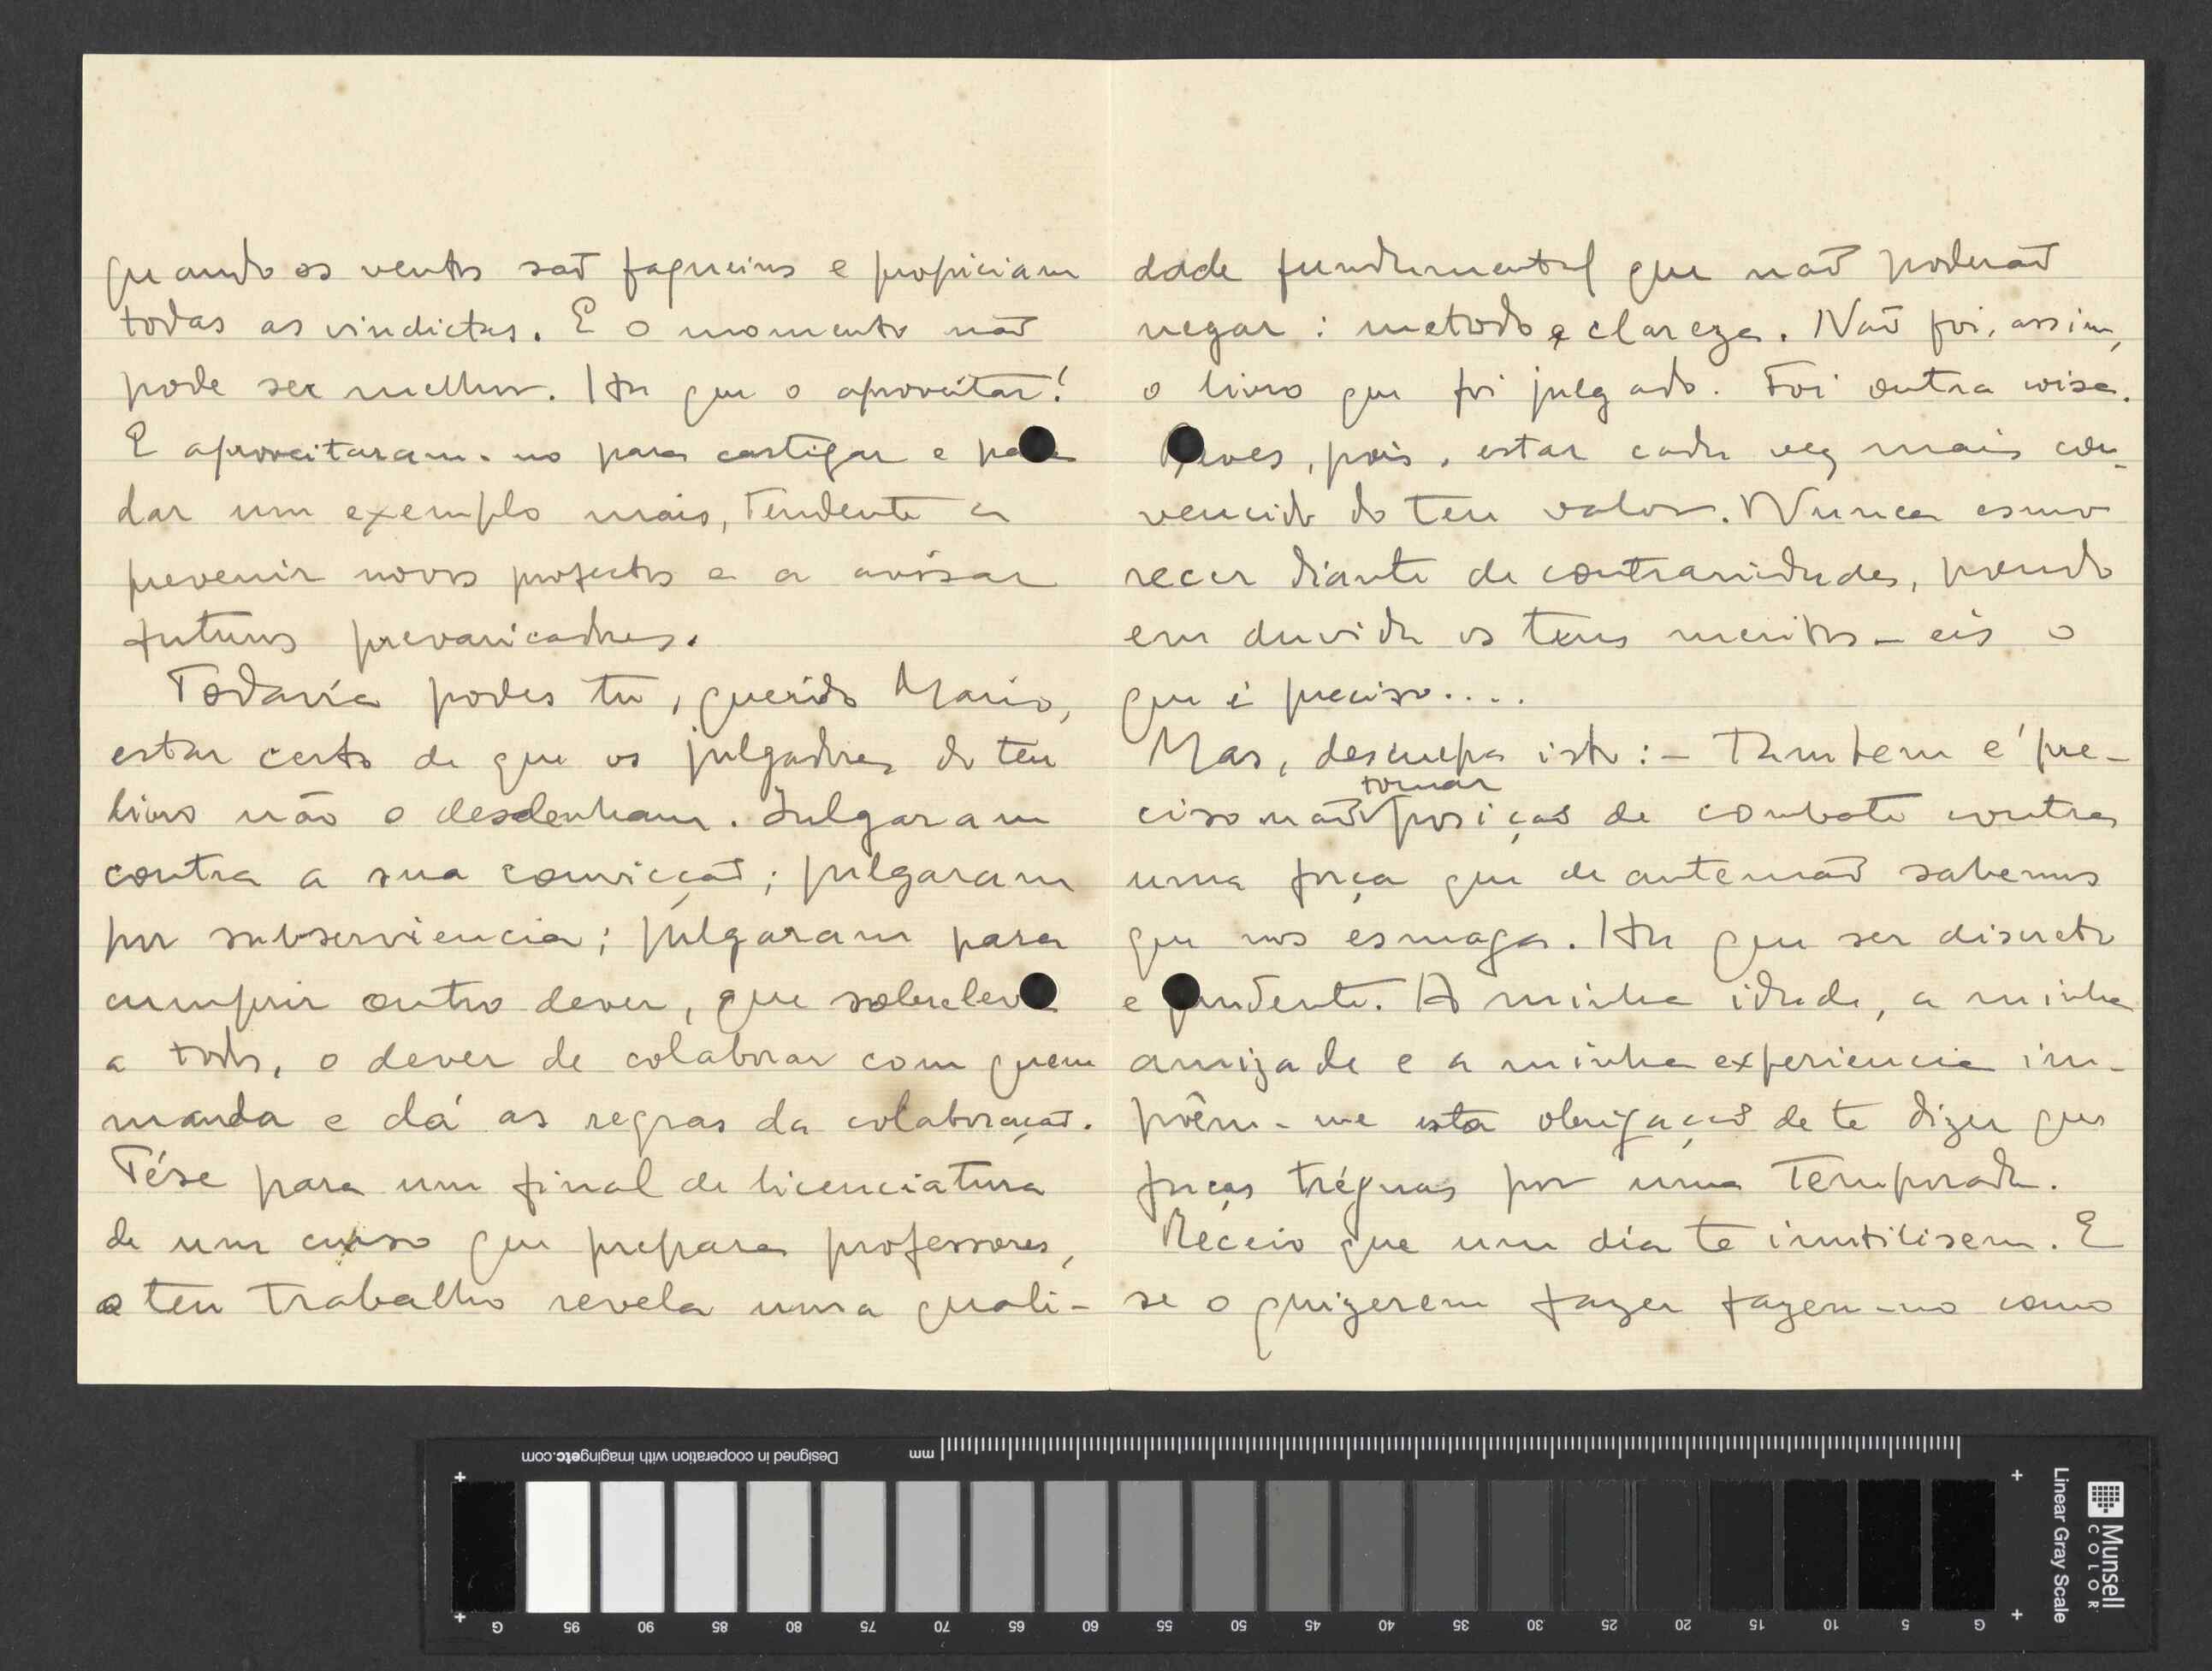 quando os ventos saõ fagueiros e propiciam
todas as vindictas. E o momento naõ
pode ser melhor. Ha que o aproveitar!
E aproveitaram-no para castigar e para
dar um exemplo mais, tendente a
prevenir novos projectos e a avisar
futuros prevaricadores.
Todavía podes tu, querido Mario,
estar certo de que os julgadores do teu
livro não o desdenham. Julgaram
contra a sua convicçaõ; julgaram
por subserviencia; julgaram para
cumprir outro dever, que sobreleva
a todos, o dever de colaborar com quem
manda e dá as regras da colaboraçaõ.
Tése para um final de licenciatura
de um curso que prepara professores,
o teu trabalho revela uma quali-
dade fundamental que naõ poderaõ
negar: metodo e clareza. Naõ foi, assim,
o livro que foi julgado. Foi outra coisa.
Deves, pois, estar cada vez mais con-
vencido do teu valor. Nunca esmo
recer diante de contrariedades, pondo
em duvida os teus meritos - eis o
que é preciso....
Mas, desculpa isto: - Tambem é pre-
ciso naõ tomar posiçaõ de combate contra
uma força que de antemaõ sabemos
que nos esmaga. Ha que ser discreto
e prudente. A minha idade, a minha
amizade e a minha experiencia im-
põem-me esta obrigaçaõ de te dizer que
faças tréguas por uma temporada.
Receio que um dia te inutilisem. E
se o quizerem fazer fazem-no como
Designed in cooperation with imagingetc.com
mm
G 95 90 85 80 75 70 65 60 55 50 45 40 35 30 25 20 15 10 5 G
Munsell
COLOR
Linear Gray Scale